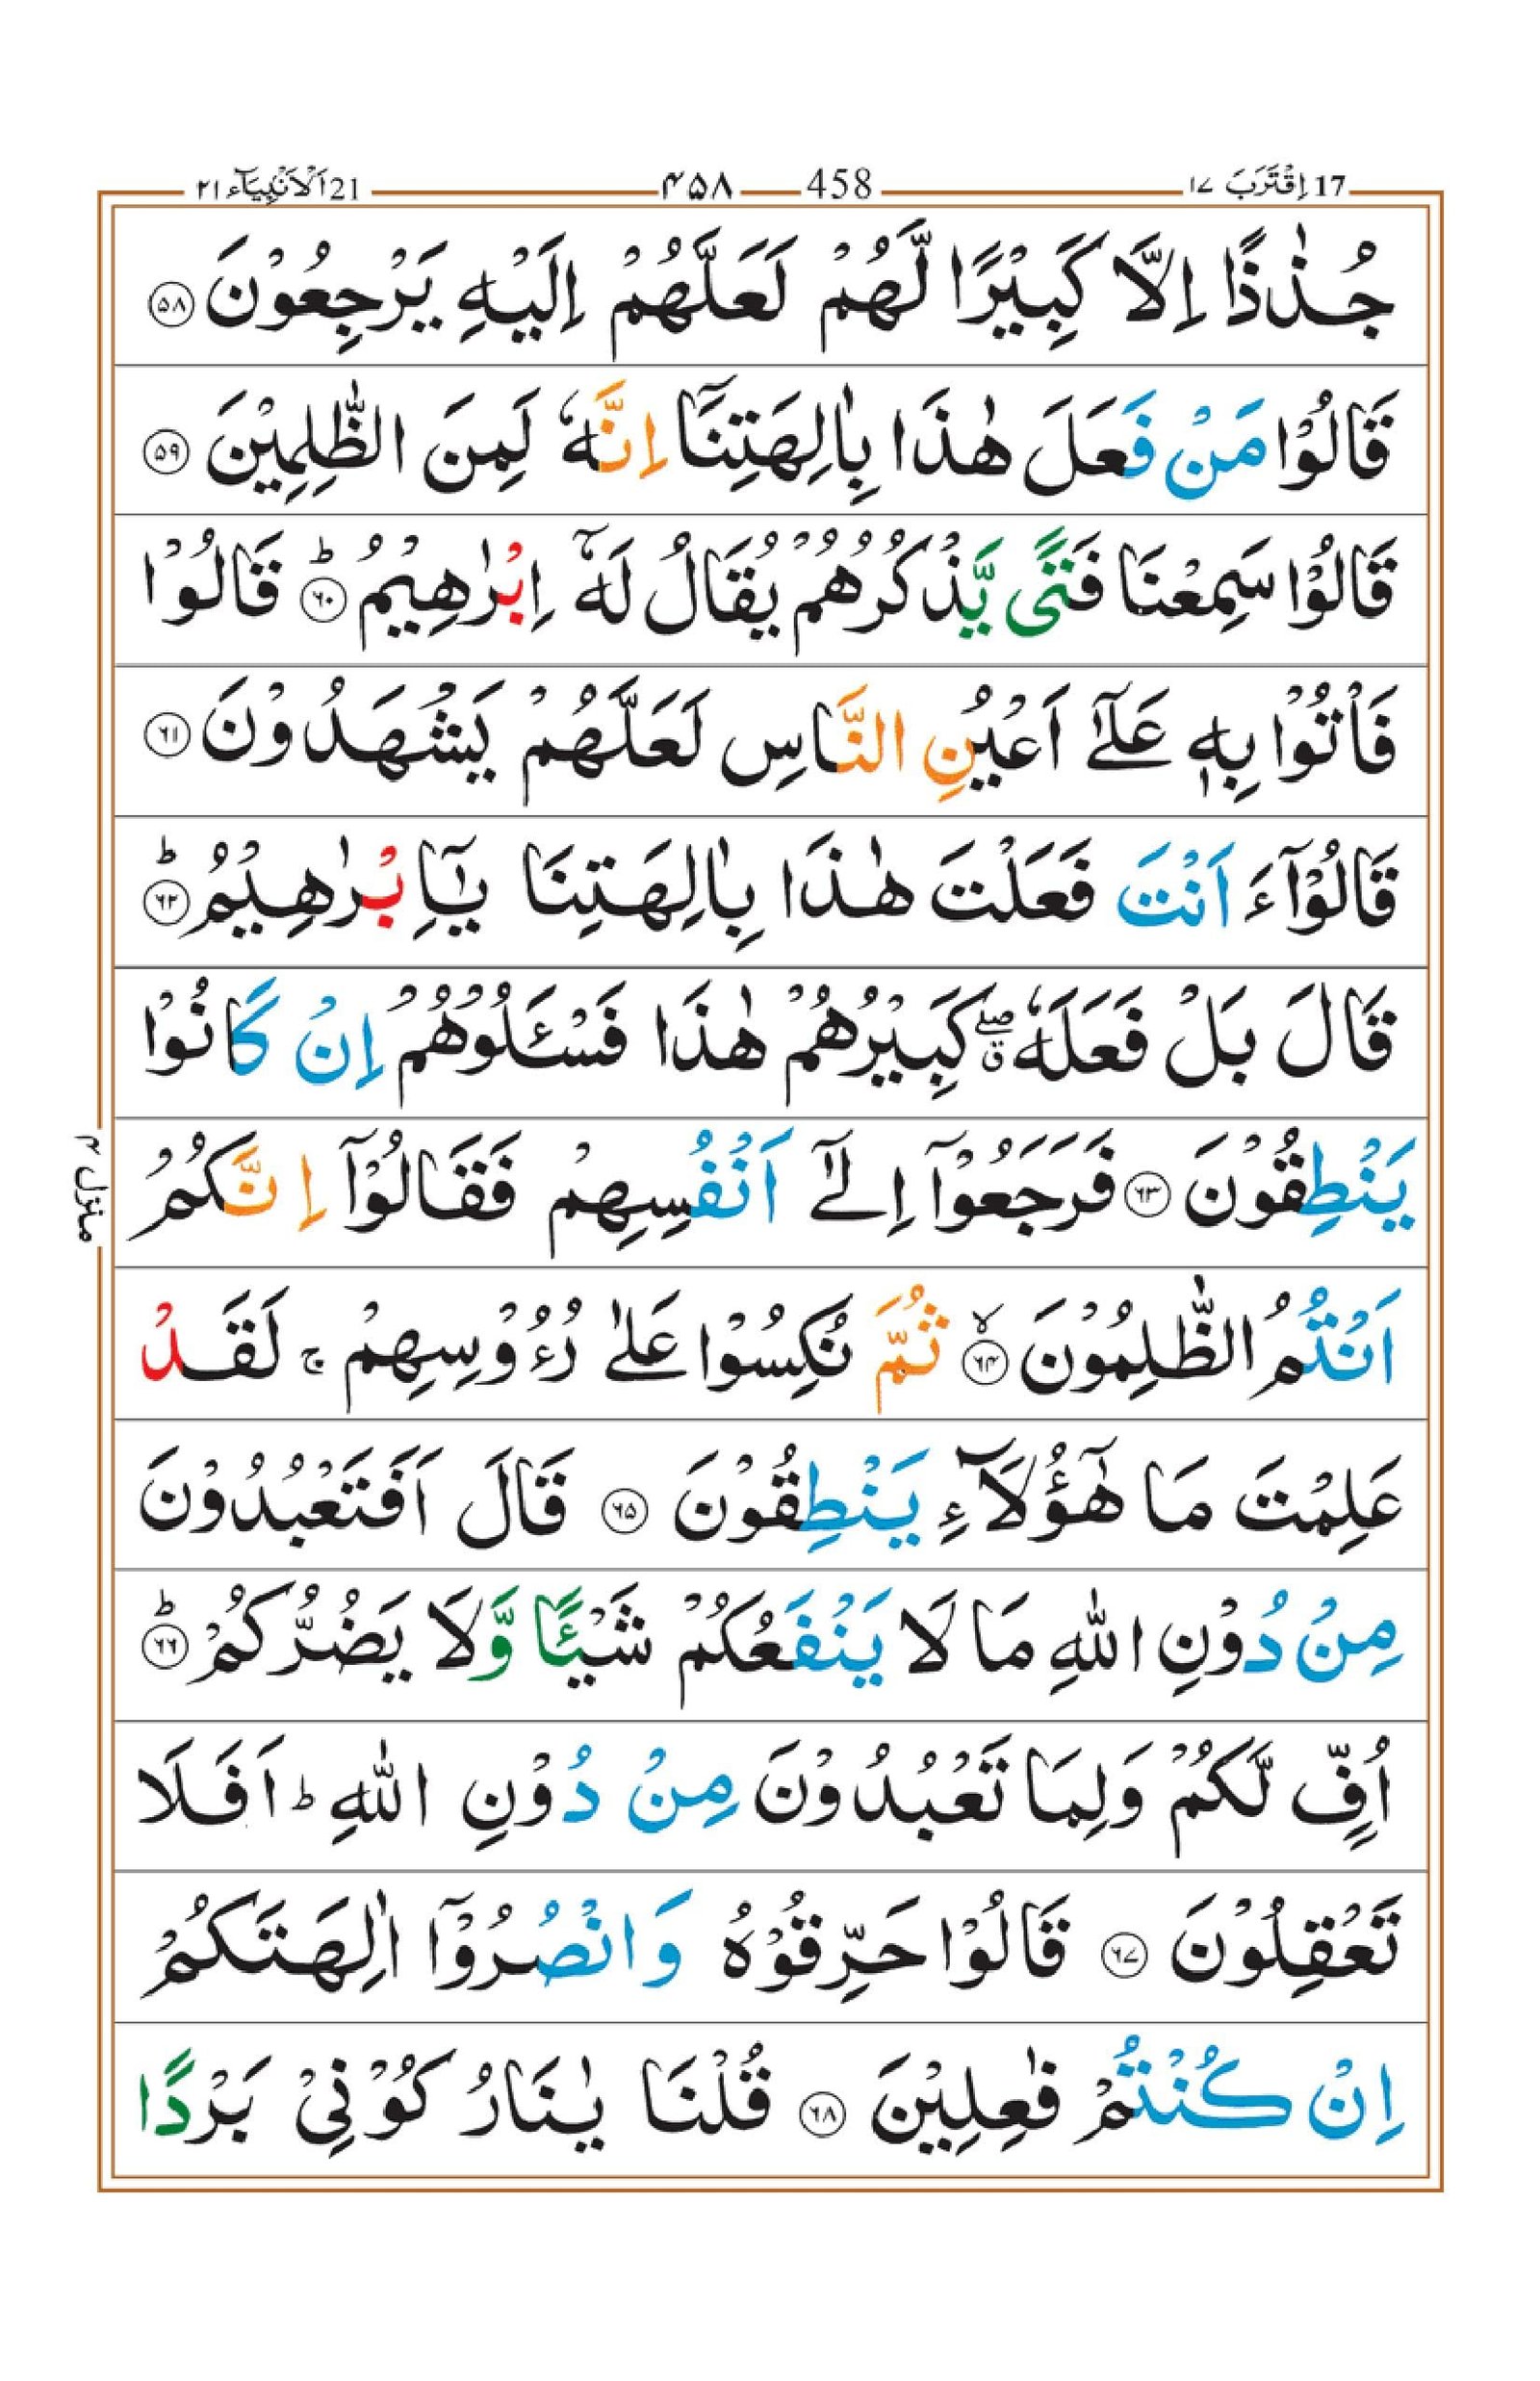 17 اِقْتَرَبَ ١٧ 458 ۴۵۸ 21 اَلْاَنْۢبِيَآء ٢١
جُذٰذًا اِلَّا كَبِيْرًا لَّهُمْ لَعَلَّهُمْ اِلَيْهِ يَرْجِعُوْنَ ۝۵۸
قَالُوْا مَنْ فَعَلَ هٰذَا بِاٰلِهَتِنَاۤ اِنَّهٗ لَمِنَ الظّٰلِمِيْنَ ۝۵۹
قَالُوْا سَمِعْنَا فَتًى يَّذْكُرُهُمْ يُقَالُ لَهٗۤ اِبْرٰهِيْمُ ؕ۝۶۰ قَالُوْا
فَاْتُوْا بِهٖ عَلٰۤى اَعْيُنِ النَّاسِ لَعَلَّهُمْ يَشْهَدُوْنَ ۝۶۱
قَالُوْۤا ءَ اَنْتَ فَعَلْتَ هٰذَا بِاٰلِهَتِنَا يٰۤاِبْرٰهِيْمُ ؕ۝۶۲
قَالَ بَلْ فَعَلَهٗ ۖۗ كَبِيْرُهُمْ هٰذَا فَسْـَٔلُوْهُمْ اِنْ كَانُوْا
يَنْطِقُوْنَ ۝۶۳ فَرَجَعُوْۤا اِلٰۤى اَنْفُسِهِمْ فَقَالُوْۤا اِنَّكُمْ
اَنْتُمُ الظّٰلِمُوْنَ ۙ۝۶۴ ثُمَّ نُكِسُوْا عَلٰى رُءُوْسِهِمْ ۚ لَقَدْ
عَلِمْتَ مَا هٰۤؤُلَآءِ يَنْطِقُوْنَ ۝۶۵ قَالَ اَفَتَعْبُدُوْنَ
مِنْ دُوْنِ اللّٰهِ مَا لَا يَنْفَعُكُمْ شَيْـًٔا وَّلَا يَضُرُّكُمْ ؕ۝۶۶
اُفٍّ لَّكُمْ وَلِمَا تَعْبُدُوْنَ مِنْ دُوْنِ اللّٰهِ ؕ اَفَلَا
تَعْقِلُوْنَ ۝۶۷ قَالُوْا حَرِّقُوْهُ وَانْصُرُوْۤا اٰلِهَتَكُمْ
اِنْ كُنْتُمْ فٰعِلِيْنَ ۝۶۸ قُلْنَا يٰنَارُ كُوْنِيْ بَرْدًا
منزل ۴